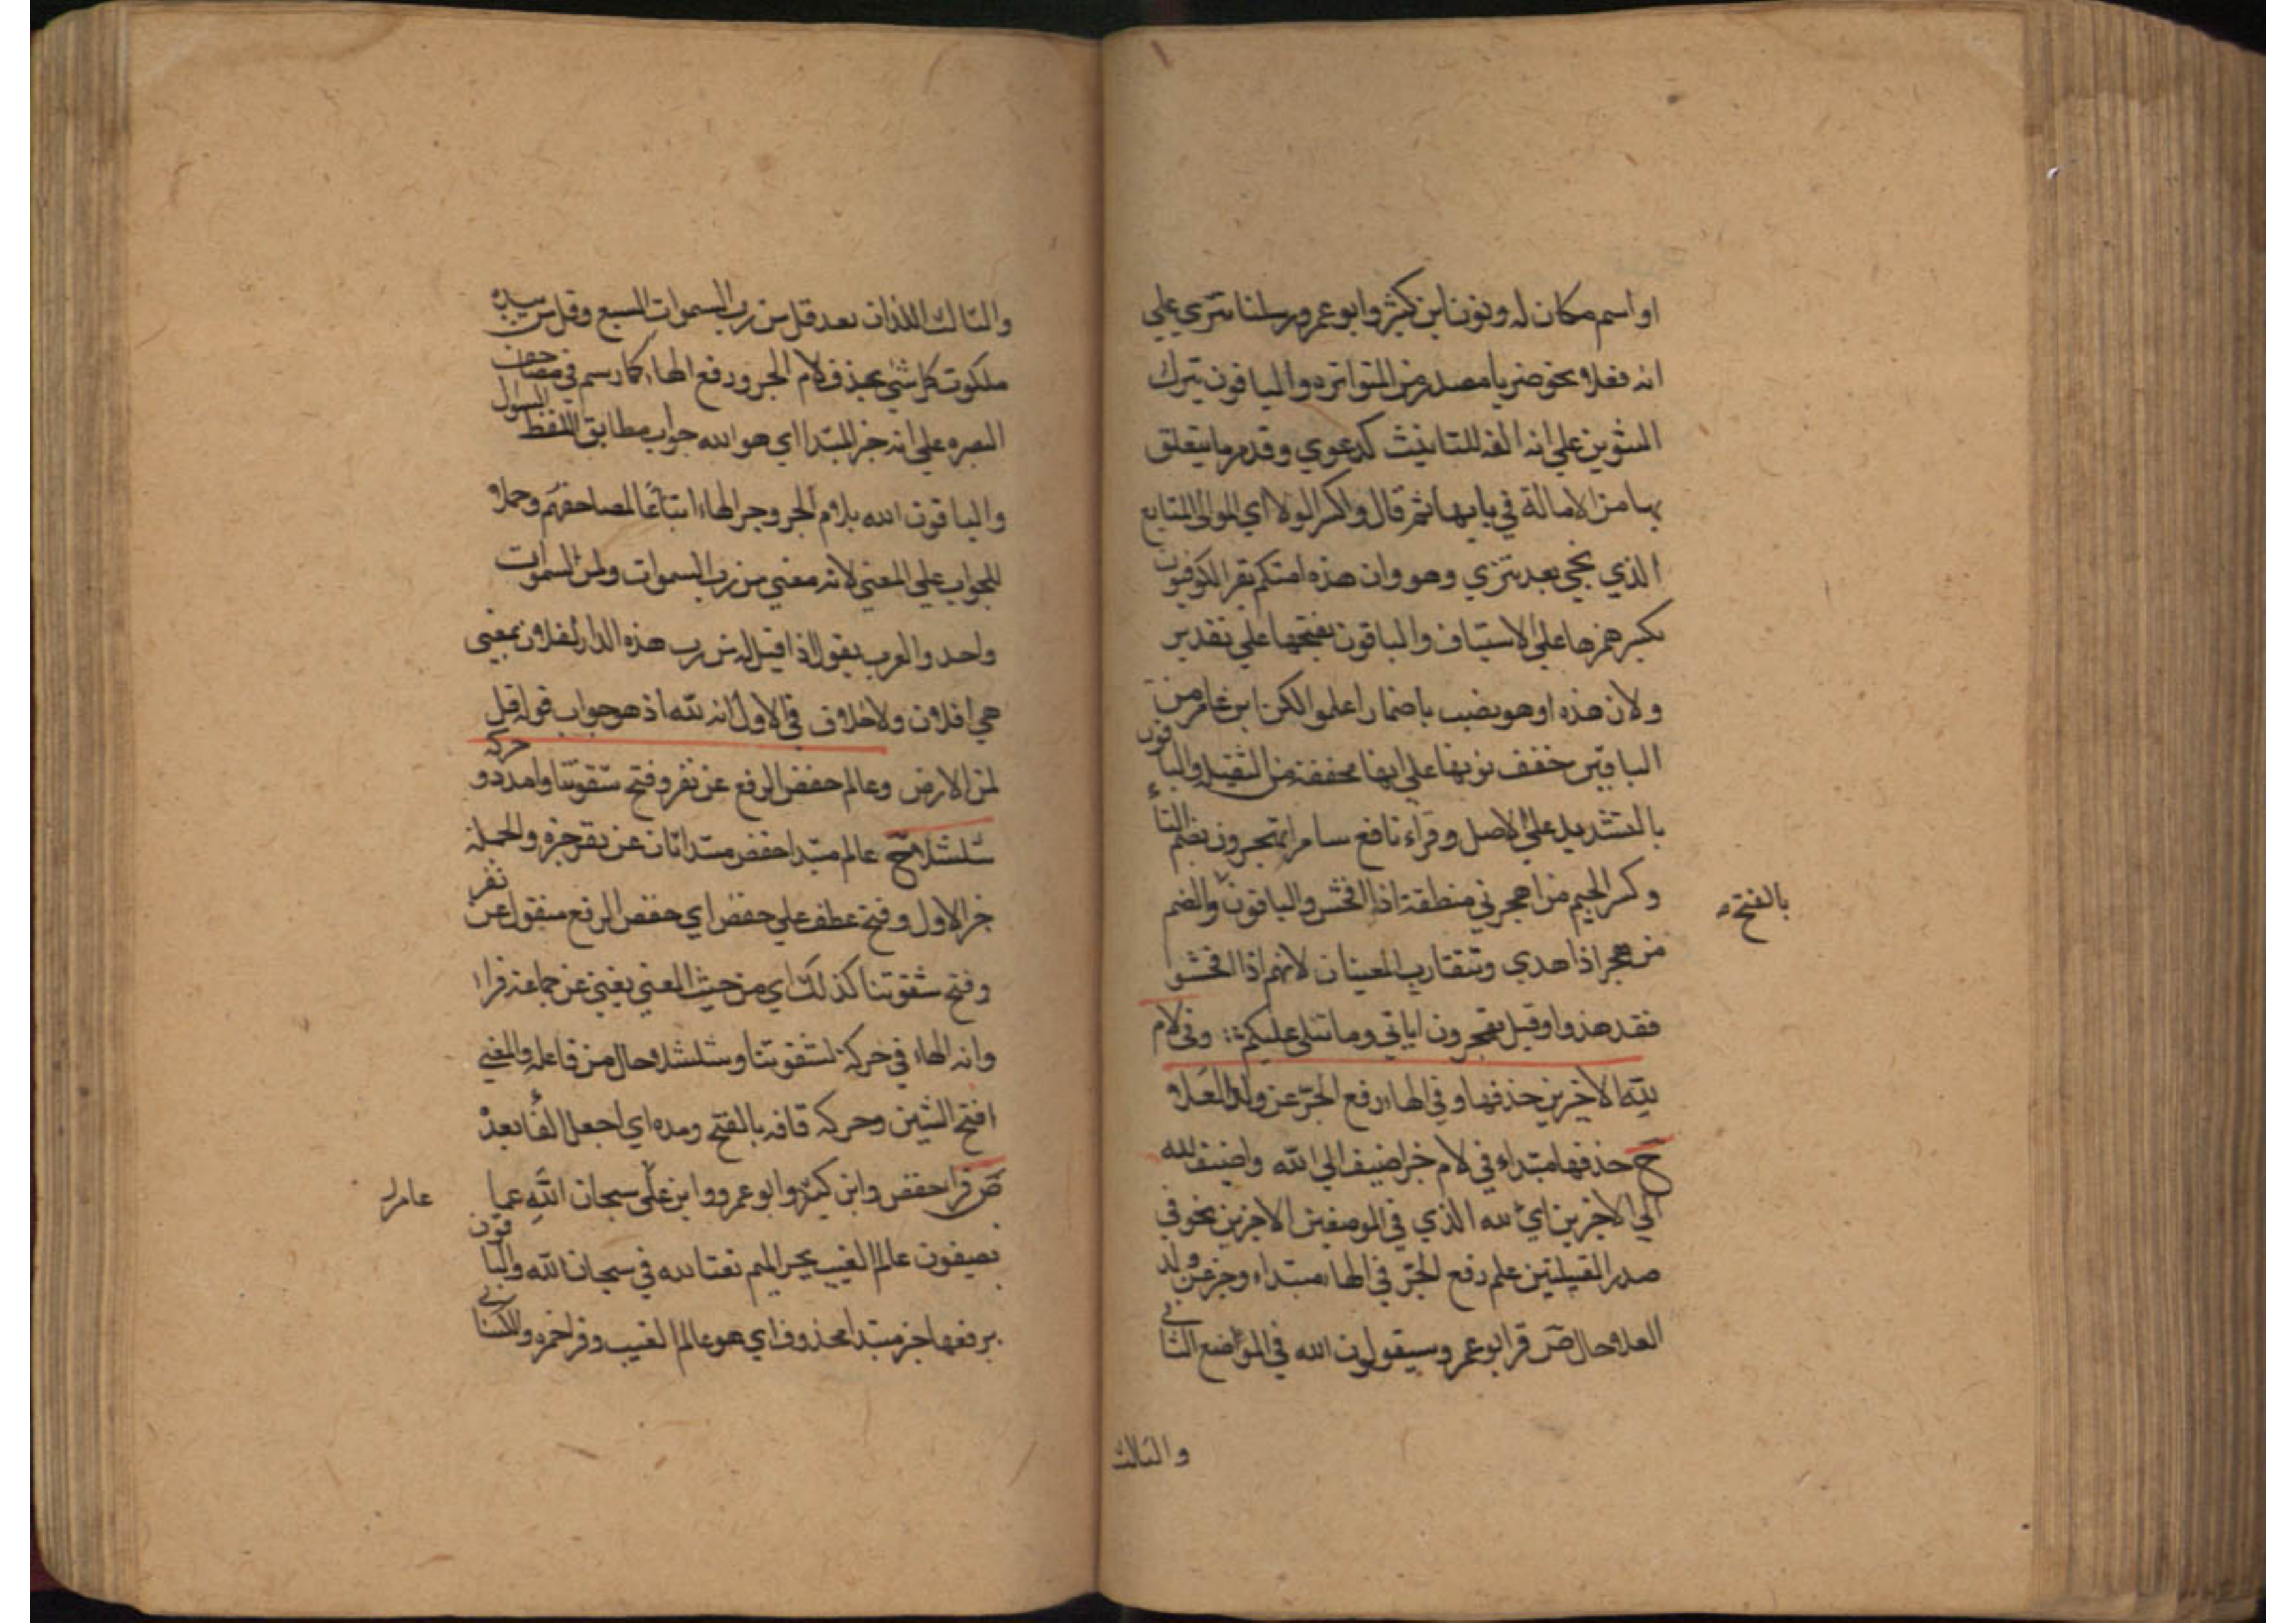 او اسم مكان له ونون ابن كثير وابو عمرو رسلنا تترى علي
انه فعلا نحو ضربا مصدر من المتواتر والباقون بترك
التنوين علي انه الفه للتانيث كدعوي وقد مر ما يتعلق
بها من الامالة في بابها ثم قال واكسر الولا اي الموالي المتابع
الذي يجي بعد تتري وهو وان هذه امتكم يقرا الكوفيون
بكسر همزها علي الاستيناف والباقون بفتحها علي تقدير
ولان هذه او هو نصب باضمار اعلموا لكن ابن عامر من
الباقين خفف نونها علي انها مخففة من الثقيلة والباقون
بالتشديد علي الاصل وقراء نافع سامرا تهجرون بضم التاء
وكسر الجيم من اهجر في منطقه اذا افحش والباقون والضم
بالفتح
من هجر اذا هدي وتتقارب المعنيان لانهم اذا افحشوا
فقد هذوا وقيل تهجرون اياتي وما تتلي عليكم :: وفي لام
لله الاخرين حذفها وفي الهاء رفع الجر عن ولد العلا
ح حذفها مبتداء في لام خبر اضيف الي الله واضيف لله
الي الاخرين اي لله الذي في الموضعين الاخرين نحو في
صدر القبيلتين علم رفع الجر في الهاء مبتداء وخبر عن ولد
العلا حال ص قرا ابو عمرو سيقولون الله في المواضع الثاني
والثالث
والثالث اللذان بعد قل من رب السموات السبع وقل من بيده
ملكوت كل شئ بحذف لام الجر ورفع الهاء كما رسم في مصاحف
البصره علي انه خبر المبتدا اي هو الله جواب مطابق للفظ السوال
والباقون لله بلام الجر وجر الهاء اتباعا لمصاحفهم وحملا
للجواب علي المعني لانه معني من رب السموات ولمن السموات
واحد والعرب يقول اذا قيل له من رب هذه الدار لفلان بمعني
هي لفلان ولا خلاف في الاول انه لله اذ هو جواب قوله قل
لمن الارض وعالم خفض الرفع عن نفر وفتح شقوتنا وامدد وحركه
شلشلا ح عالم مبتدا خفض مبتدا ثان عن نفر خبره والجملة
خبر الاول وفتح عطف علي خفض اي خفض الرفع منقول عن نفر
وفتح شقوتنا كذلك اي من حيث المعني يعني عن جماعة قراء
وانه الهاء في حركه لشقوتنا وشلشلا حال من فاعله والمعني
افتح الشين وحركه قافه بالفتح ومده اي اجعل الفا بعده
ص قرا حفص وابن كثير وابو عمرو وابن علي سبحان الله عما
عامر
يصفون عالم الغيب بجر الميم نعتا لله في سبحان الله والباقون
برفعها خبر مبتدا محذوف اي هو عالم الغيب وقرا حمزه والكسائي